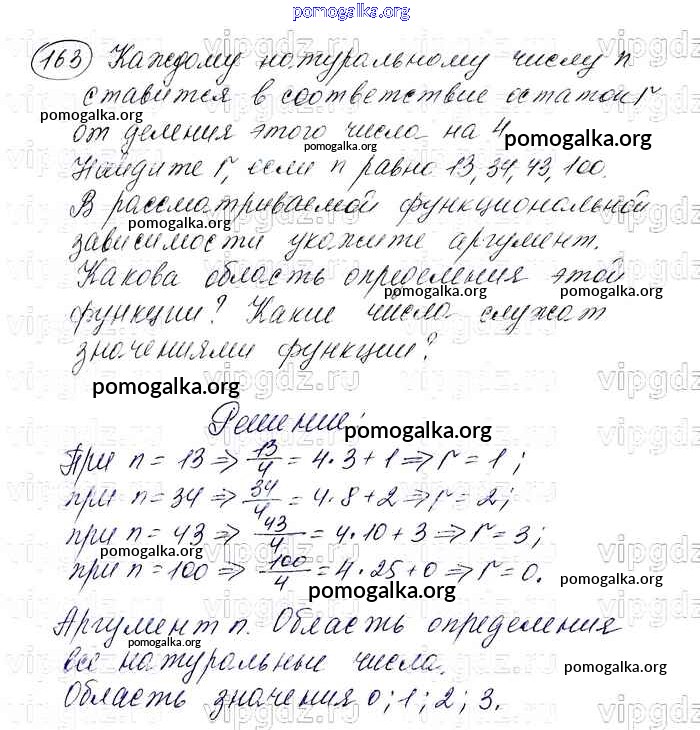 pomogalka.org
163 Каждому натуральному числу n
ставится в соответствие остаток r
pomogalka.org
от деления этого числа на 4.
pomogalka.org
Найдите r, если n равно 13, 34, 43, 100.
В рассматриваемой функциональной
pomogalka.org
зависимости укажите аргумент.
Какова область определения этой
pomogalka.org pomogalka.org
функции? Какие числа служат
значениями функции?
pomogalka.org
Решение:
pomogalka.org
При n = 13 ⇒ 13/4 = 4·3+1 ⇒ r = 1;
при n = 34 ⇒ 34/4 = 4·8+2 ⇒ r = 2;
при n = 43 ⇒ 43/4 = 4·10+3 ⇒ r = 3;
pomogalka.org
при n = 100 ⇒ 100/4 = 4·25+0 ⇒ r = 0.
pomogalka.org pomogalka.org
Аргумент n. Область определения
все натуральные числа.
pomogalka.org
Область значения 0; 1; 2; 3.
vipgdz.ru